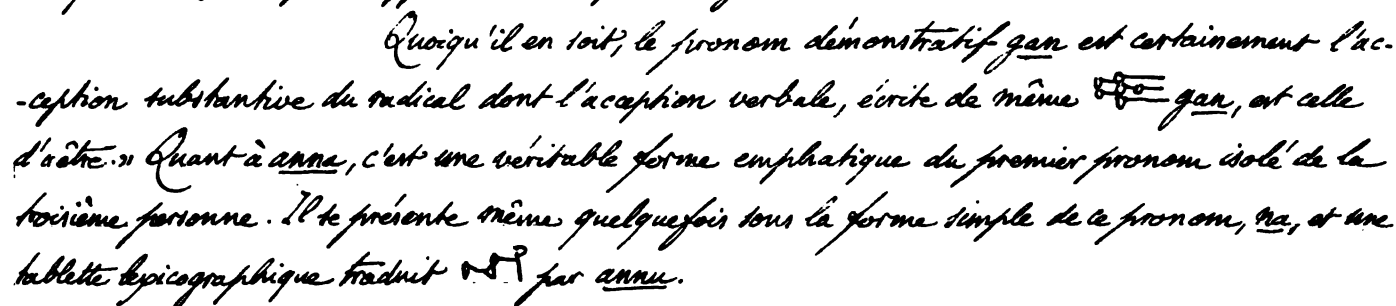 Quoiqu'il en soit, le pronom démonstratif gan est certainement l'ac-
-ception substantive du radical dont l'acception verbale, écrite de même gan, est celle
d'«être.» Quant à anna, c'est une véritable forme emphatique du premier pronom isolé de la
troisième personne. Il se présente même quelquefois sous la forme simple de ce pronom, na, et une
tablette lexicographique traduit par annu.